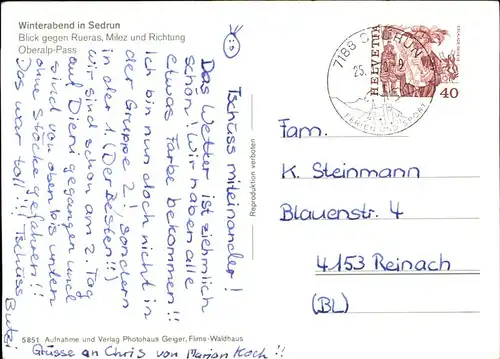 Winterabend in Sedrun
Blick gegen Rueras, Milez und Richtung
Oberalp-Pass
Tschüss miteinander!
Das Wetter ist ziehmlich
schön! Wir haben alle
etwas Farbe bekommen!!
Ich bin nun doch nicht in
der Gruppe 2! sondern
in der 1. (Der Besten!!)
Wir sind schon am 2. Tag
auf Dieni gegangen und
sind von oben bis unten
ohne Stöcke gefahren!!
Das war toll!!! Tschüss
Butzi
Grüsse an Chris von Marian Koch!!
5851 Aufnahme und Verlag Photohaus Geiger, Flims-Waldhaus
Reproduktion verboten
7188 SEDRUN
25.
FERIEN UND SPORT
HELVETIA
40
Fam.
K. Steinmann
Blauenstr. 4
4153 Reinach
(BL)